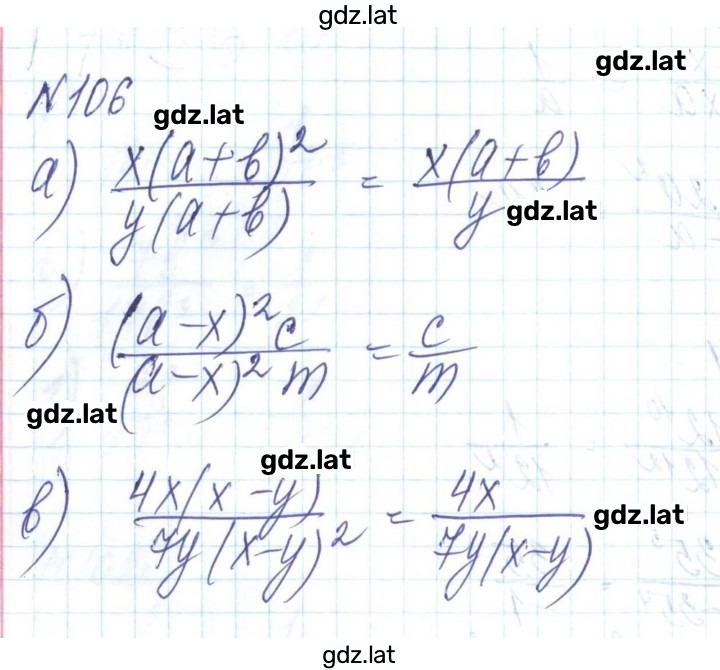 gdz.lat
gdz.lat
N 106
gdz.lat
а) x(a+b)² / y(a+b) = x(a+b) / y
gdz.lat
б) (a-x)²c / (a-x)²m = c / m
gdz.lat
gdz.lat
в) 4x(x-y) / 7y(x-y)² = 4x / 7y(x-y)
gdz.lat
gdz.lat